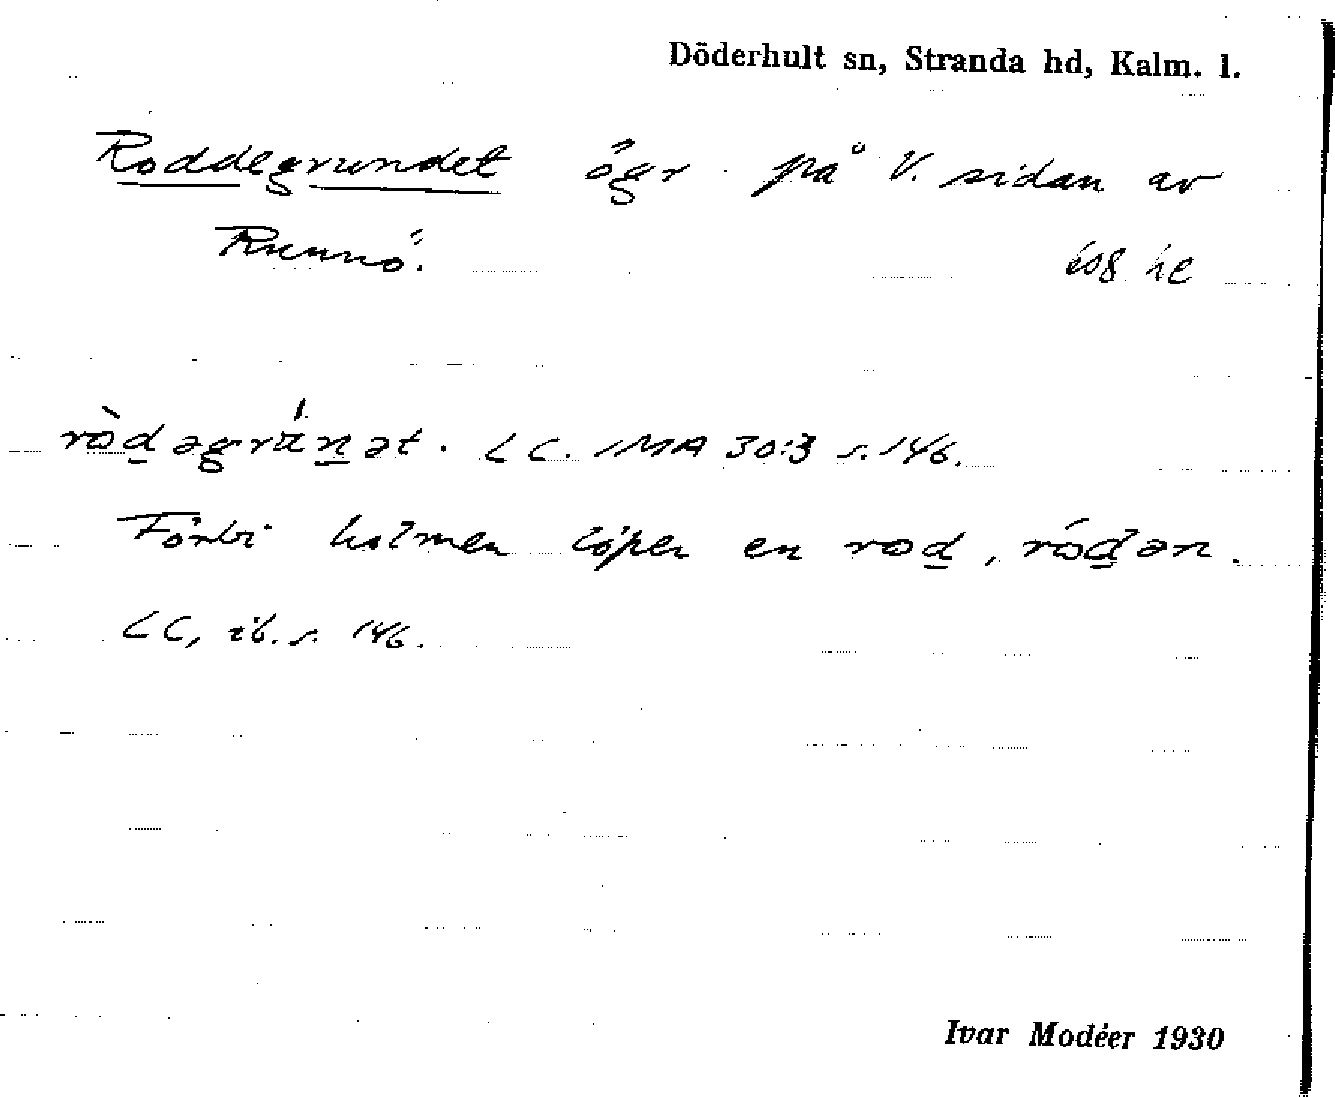 Döderhult sn, Stranda hd, Kalm. l.
Roddegrundet ögr på V. sidan av
Runnö. 608 he
ròd̲əgrún̲ət. LC. IMA 30:3 s. 146.
Förbi holmen löper en rod̲, ród̲ən.
LC, ib. s. 146.
Ivar Modéer 1930